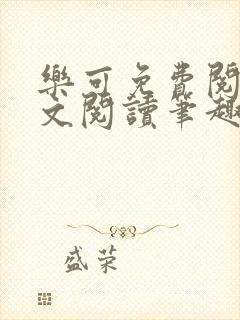 樂可免費閱
文閱讀筆趣
盛荣